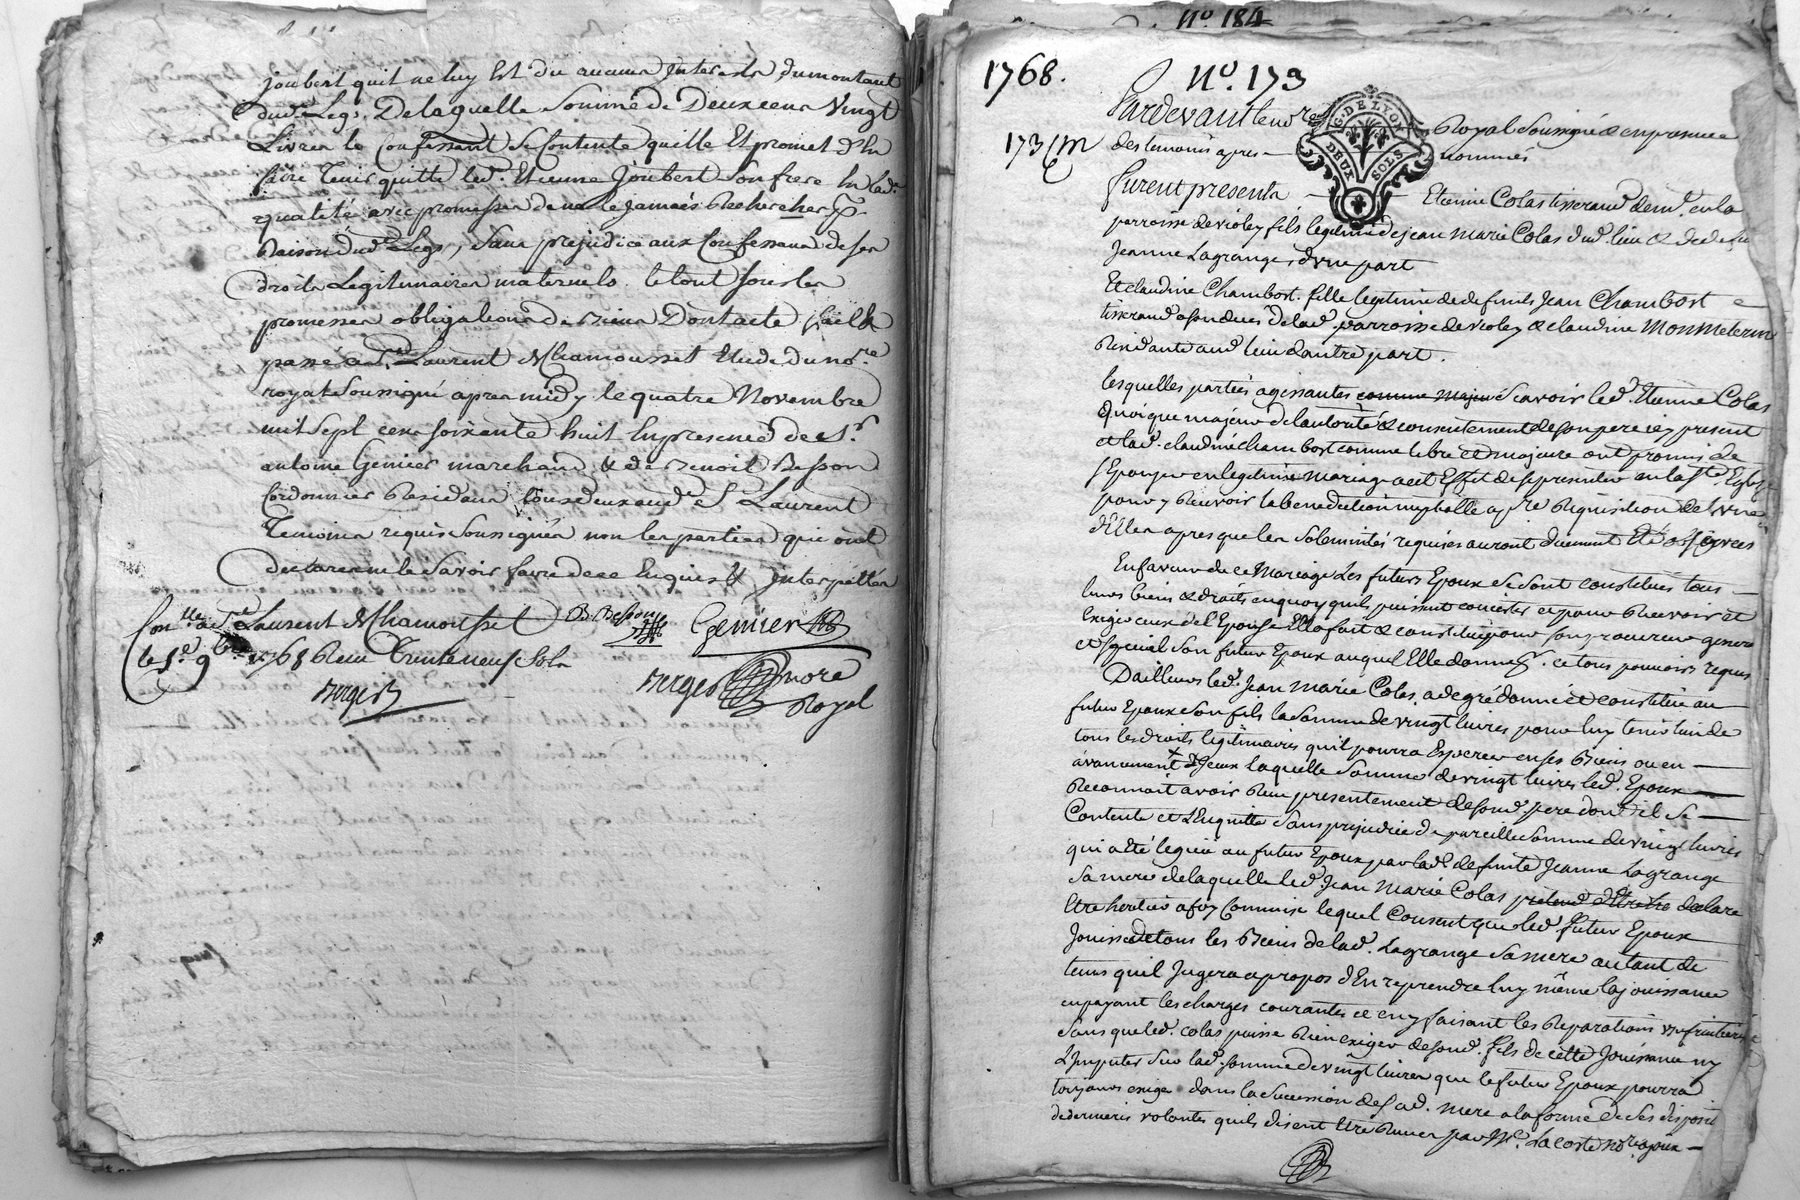 joubert quil ne luy Est du aucuns Interests du montant
dud. Legs, De laquelle Somme de Deux cens Vingt
Livres le Confessant Se Contente quitte Et promet d'En
faire Tenir quitte led. Etienne Joubert Son frere En lad.
qualité avec promesses de ne le jamais Rechercher pr
Raison dud. Legs, Sans prejudice aux Confessans de ses
droits Legitimaires maternels. le tout sous les
promesses obligations de Biens Dont acte fait &
passé a St. Laurent de Chamousset Etude du nore.
royal Soussigné apres midy le quatre Novembre
mil Sept cens soixante huit En presence de Sr.
antoine Genier marchand & de Benoit Besson
Cordonnier Residans tous deux aud. St Laurent
Temoins requis Soussignés non les parties qui ont
declaré ne le Savoir faire de ce Enquis & Interpellés
Conlle. a St. Laurent de Chamousset B. Besson Genier
le 9bre 1768 Reçu Trente neuf Sols
Berger
Berger nore
Royal
No. 184
1768. No. 173
173 Cm
Pardevant le nore
G. DE LYON
DEUX SOLS
Royal Soussigné & en presence
des temoins apres nommés
furent presents Etienne Colas tisserand demt. en la
parroisse de violey fils legitime de jean Marie Colas dud. lieu & de defte
Jeanne Lagrange, d'une part
Et claudine Chambost. fille legitime de defunts Jean Chambost
tisserand de lad. parroisse de violey & claudine
Residante aud. lieu d'autre part.
lesquelles parties agissantes comme majeur Scavoir led. Etienne Colas
quoique majeur de l'autorité & consentement de son pere icy present
et lad. claudine chambost comme libre et majeure ont promis de
s'Epouser en legitime mariage a cet Effet de se presenter en la Ste. Eglise
pour y Recevoir la benediction nuptialle a pre Requisition de l'une
d'Elles apres que les Solemnités requises auront duement été observées
En faveur de ce Mariage Les futurs Epoux Se Sont constitués tous
leurs biens & droits en quoy quils puissent concister et pour Recevoir et
Exiger ceux de l'Epouse Elle fait & constitue pour son procureur general
et special Son futur Epoux auquel Elle donne pr. ce tous pouvoirs requis
D'ailleurs led. Jean Marie Colas a de gré donné et constitué au
futur Epoux Son fils la Somme de vingt livres pour luy tenir lieu de
tous les droits legitimaires quil pourra Esperer en ses Biens ou en
avancement d'yceux Laquelle Somme de vingt livres led. Epoux
Reconnoit avoir Reçu presentement de sond. pere dont il Se
Contente et L'Enquitte Sans prejudice de pareille Somme de vingt livres
qui a été leguée au futur Epoux par lad. defunte Jeanne Lagrange
Sa mere de laquelle led. Jean Marie Colas declare
Etre heritier a foy Commise lequel Consent que led. futur Epoux
Jouisse de tous les Biens de lad. Lagrange Sa mere autant de
tems quil Jugera a propos d'En reprendre luy même la jouissance
en payant les charges courantes et en y faisant les Reparations usufruitieres
Sans que led. Colas puisse Rien exiger de sond. fils de cette Jouissance ny
L'Imputer Sur lad. somme de vingt livres que le futur Epoux pourra
toujours exiger dans la Succession de sad. mere a la forme de Ses dispositions
de dernieres volontés quils disent Etre Reçues par Me. Lacoste nore.